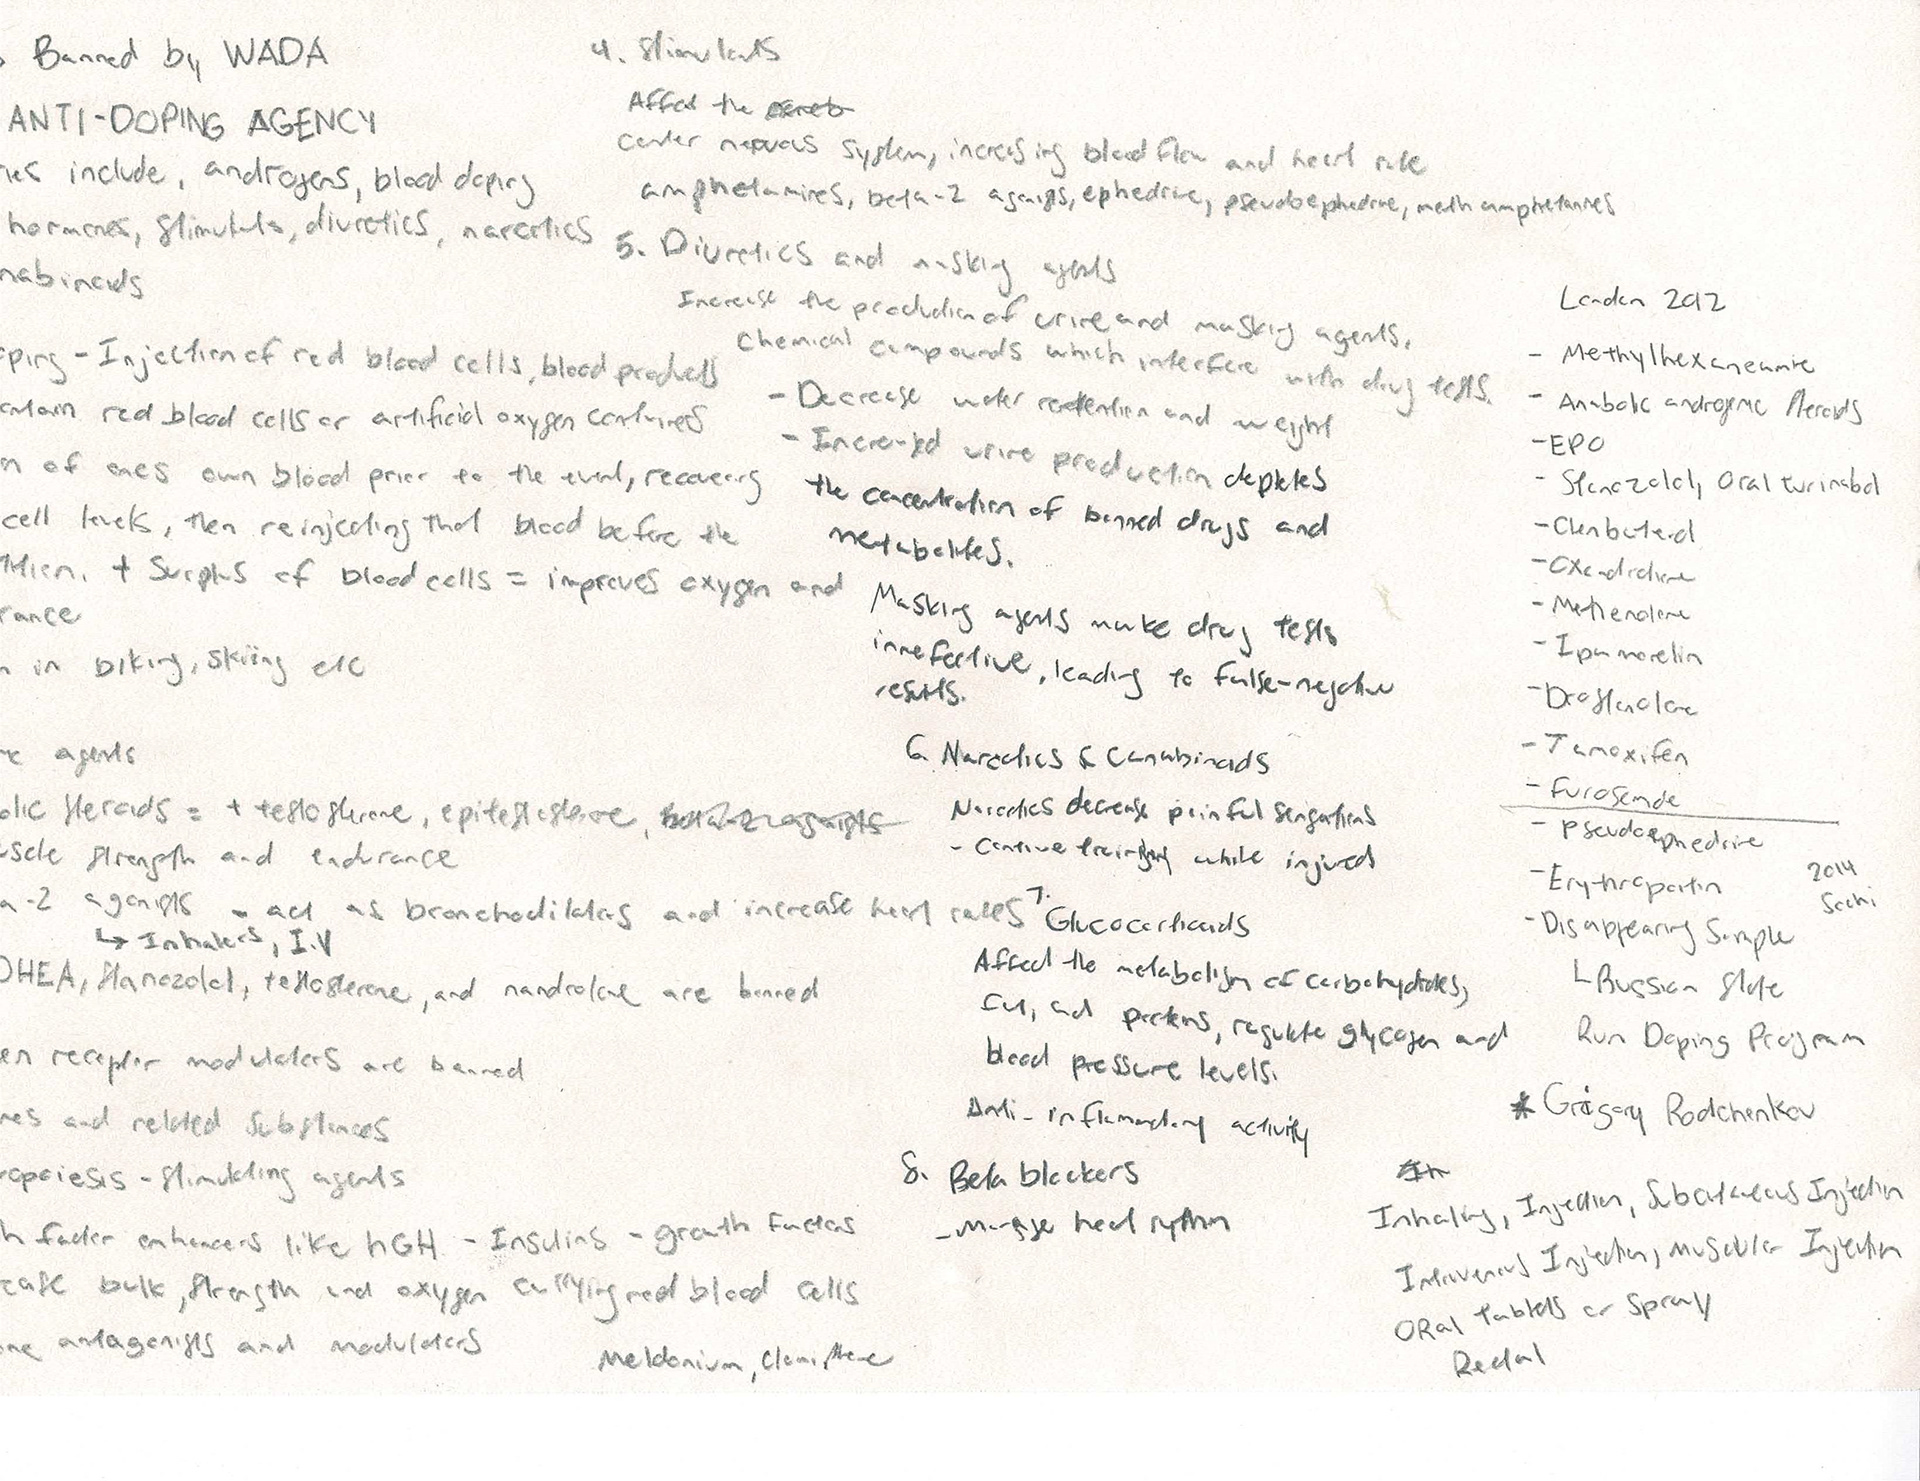 Banned by WADA
ANTI-DOPING AGENCY
nes include, androgens, blood doping
hormones, stimulants, diuretics, narcotics
nabinoids
ping - Injection of red blood cells, blood products
contain red blood cells or artificial oxygen
n of ones own blood prior to the event, recovering
cell levels, then reinjecting that blood before the
+ Surplus of blood cells = improves oxygen and
rance
n in biking, skiing etc
agents
olic steroids = + testosterone, epitestosterone,
uscle strength and endurance
a-2 agonists - act as bronchodilators and increase heart rates
↳ Inhalers, I.V
DHEA, stanozolol, testosterone, and nandrolone are banned
en receptor modulators are banned
nes and related substances
ropoiesis - stimulating agents
h factor enhancers like hGH - Insulins - growth factors
rease bulk, strength and oxygen carrying red blood cells
one antagonists and modulators
Meldonium, Clomiphene
4. Stimulants
Affect the
center nervous system, increasing blood flow and heart rate
amphetamines, beta-2 agonists, ephedrine, pseudoephedrine, methamphetamines
5. Diuretics and masking agents
Increase the production of urine and masking agents,
chemical compounds which interfere with drug tests.
- Decrease water retention and weight
- Increased urine production depletes
the concentration of banned drugs and
metabolites.
Masking agents make drug tests
inneffective, leading to false-negative
results.
6. Narcotics & Canabinoids
Narcotics decrease painful sensations
- Continue training while injured
7. Glucocorticoids
Affect the metabolism of carbohydrates,
fat, and proteins, regulate glycogen and
blood pressure levels.
Anti-inflammatory activity
8. Beta blockers
- Manage heart rythm
London 2012
- Methylhexaneamine
- Anabolic androgenic steroids
- EPO
- Stanozolol, Oral turinabol
- Clenbuterol
- Oxandrolone
- Methenolone
- Ipamorelin
- Drostanolone
- Tamoxifen
- Furosemide
- pseudoephedrine
- Erythropoietin
2014
Sochi
- Disappearing Sample
└ Russian State
Run Doping Program
* Grigory Rodchenkov
Inhaling, Injection, Subcutaneous Injection
Intravenous Injection, muscular Injection
ORal tablets or Spray
Rectal